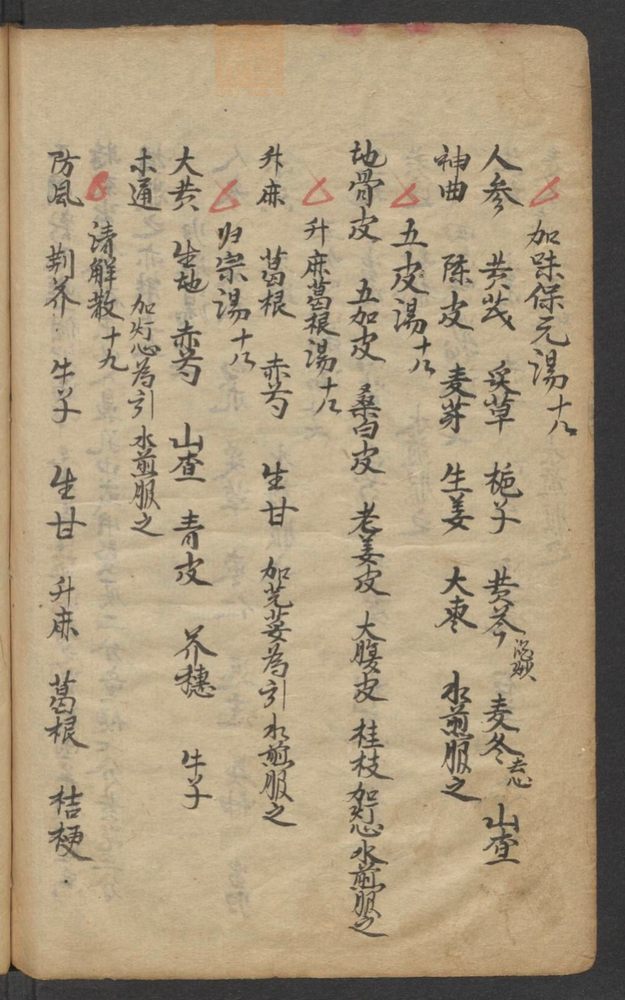 加味保元湯十六
人参 黄芪 炙草 梔子 黄芩 麦冬去心 山查
神曲 陈皮 麦芽 生姜 大枣 水煎服之
五皮湯十六
地骨皮 五加皮 桑白皮 老姜皮 大腹皮 桂枝 加灯心水煎服之
升麻葛根湯十六
升麻 葛根 赤芍 生甘 加芫荽為引水煎服之
归宗湯十八
大黄 生地 赤芍 山查 青皮 芥穗 牛子
木通 加灯心為引水煎服之
清解散十九
防風 荆芥 牛子 生甘 升麻 葛根 桔梗